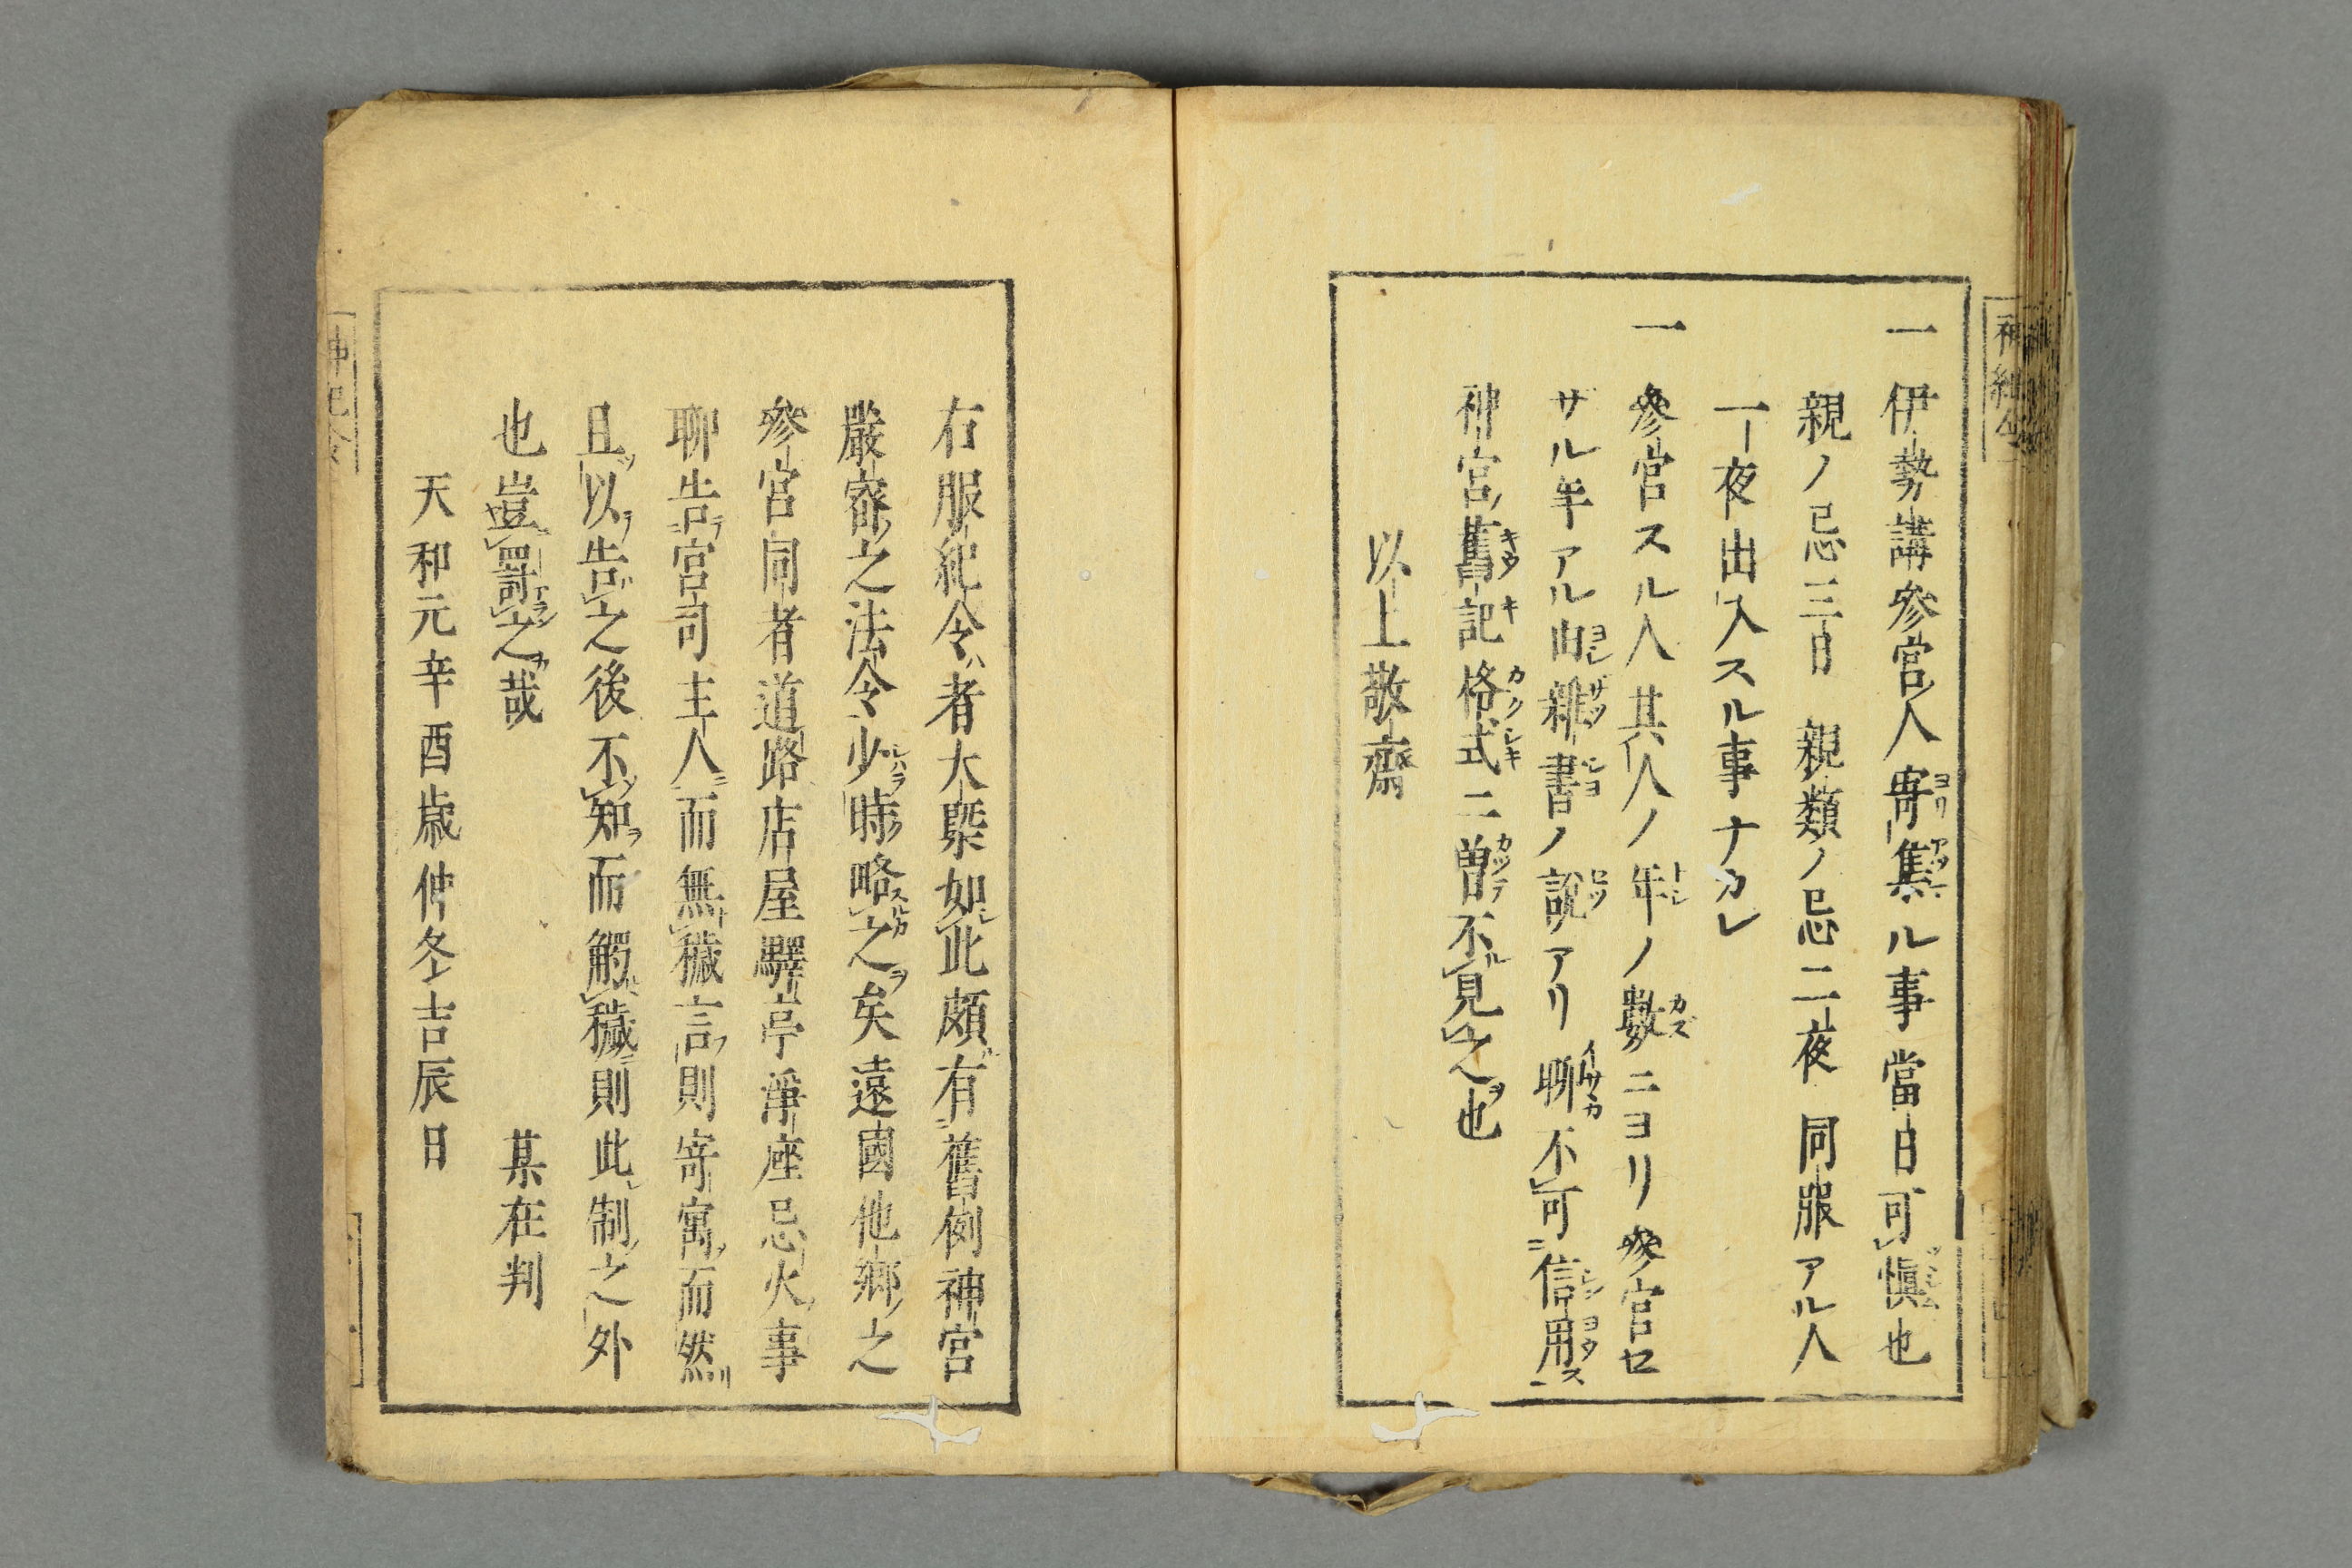 一 伊勢講參宮人寄集ル事當日可愼也
親ノ忌三日 親類ノ忌二夜 同服アル人
一夜出入スル事ナカレ
一 參宮スル人其人ノ年ノ數ニヨリ參宮セ
ザル年アル由雜書ノ說アリ聊不可信用
神宮舊記格式ニ曽不見之也
以上敬齋
右服紀令者大槩如此頗有舊例神宮
嚴密之法令少時略之矣遠國他鄉之
參宮同者道路店屋驛亭淨座忌火事
聊告宮司主人而無穢言則寄寓而然
且以告之後不知而觸穢則此制之外
也豈罸之哉 某在判
天和元辛酉歳仲冬吉辰日